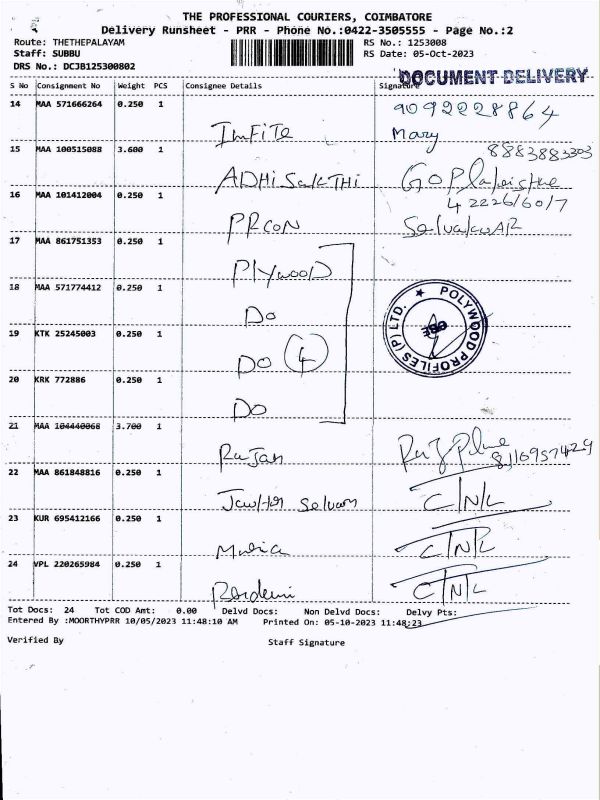 THE PROFESSIONAL COURIERS, COIMBATORE
Delivery Runsheet - PRR - Phone No.:0422-3505555 - Page No.:2
Route: THETHEPALAYAM
RS No.: 1253008
Staff: SUBBU
RS Date: 05-Oct-2023
DRS No.: DCJB125300802
DOCUMENT DELIVERY
S No Consignment No Weight PCS Consignee Details Signature
14 MAA 571666264 0.250 1
9092228864
Mary
15 MAA 100515088 3.600 1
8883883303
ADHi SakTHi
16 MAA 101412004 0.250 1
PRCON
17 MAA 861751353 0.250 1
Plywood
18 MAA 571774412 0.250 1
Do
POLYWOOD PROFILES (P) LTD.
19 KTK 25245003 0.250 1
Do 4
20 KRK 772886 0.250 1
Do
21 MAA 104440068 3.700 1
Rajan
22 MAA 861848816 0.250 1
Selvam
C/N/L
23 KUR 695412166 0.250 1
C/N/L
24 VPL 220265984 0.250 1
C/N/L
Tot Docs: 24 Tot COD Amt: 0.00 Delvd Docs: Non Delvd Docs: Delvy Pts:
Entered By :MOORTHYPRR 10/05/2023 11:48:10 AM Printed On: 05-10-2023 11:48:23
Verified By Staff Signature